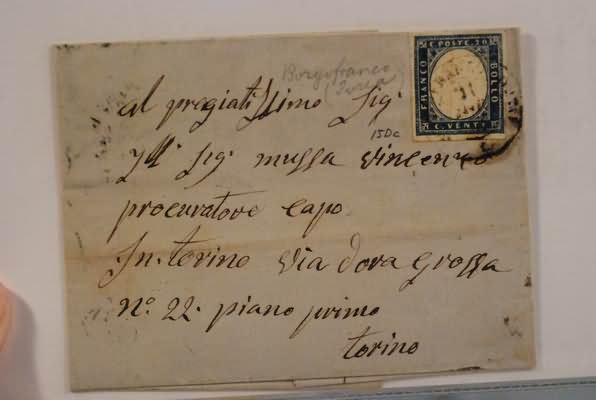 Borgofranco
(Ivrea)
C. POSTE. 20
FRANCO
BOLLO
C. VENTI
15Dc
al pregiatissimo Sig.
Ill. Sig. mussa vincenzo
procuratore capo
In. torino via dora grossa
n.o 22. piano primo
torino